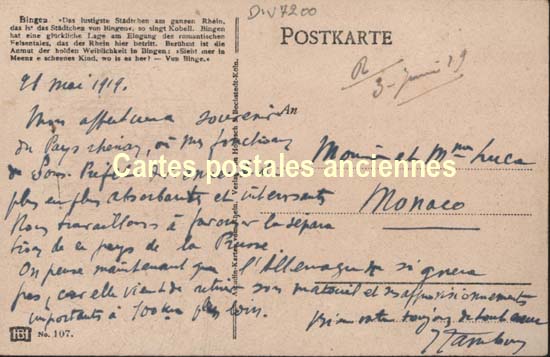 Bingen „Das lustigste Städtchen am ganzen Rhein,
das is't das Städtchen von Bingen«, so singt Kobell. Bingen
hat eine glückliche Lage am Eingang des romantischen
Felsentales, das der Rhein hier betritt. Berühmt ist die
Anmut der holden Weiblichkeit in Bingen: »Sieht mer in
Meenz e scheenes Kind, wo is es her? — Von Binge.«
Div 7200
POSTKARTE
R
3 - juin 19
21 mai 1919.
Mon affectueux souvenir
An
du Pays rhénan, où mes fonctions
de Sous-Préfet
Monsieur et Mme Luca
Cartes postales anciennes
plus en plus absorbantes et intéressantes
Monaco
Nous travaillons à favoriser la sépara
tion de ce pays de la Prusse
On pense maintenant que l'Allemagne signera
pas, car elle vient de retirer son matériel et ses approvisionnements
importants à 700 km plus loin.
bien votre toujours de tout cœur
No. 107.